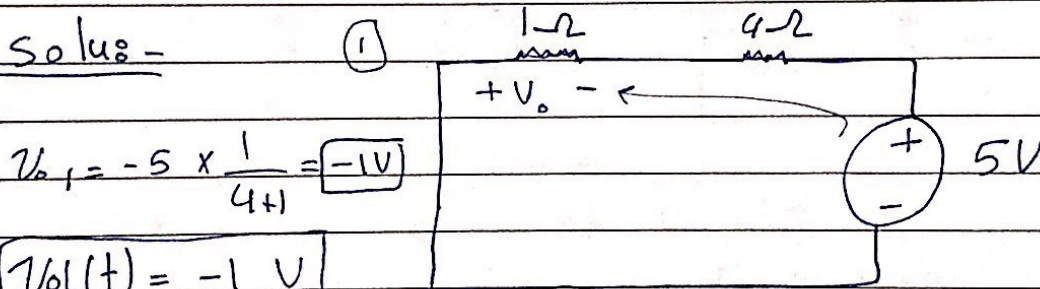 Solu:-
①
1Ω 4Ω
+ V₀ -
+
-
5V
V₀₁ = -5 × 1/(4+1) = -1V
V₀1(t) = -1 V